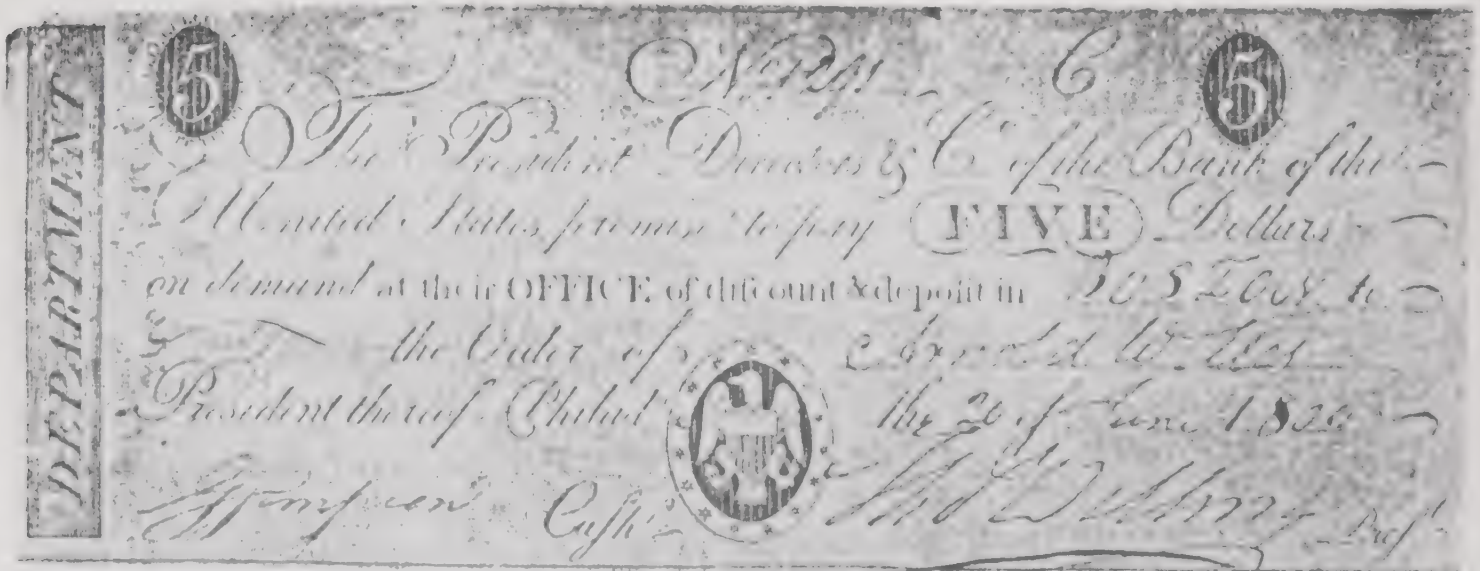 DEPARTMENT
5 C 5
The President Directors & Co. of the Bank of the
United States promise to pay FIVE Dollars
on demand at their OFFICE of discount & deposit in
the Order of
President thereof Philad.ᵃ the 20 of June
Cash.ʳ Pres.ᵗ